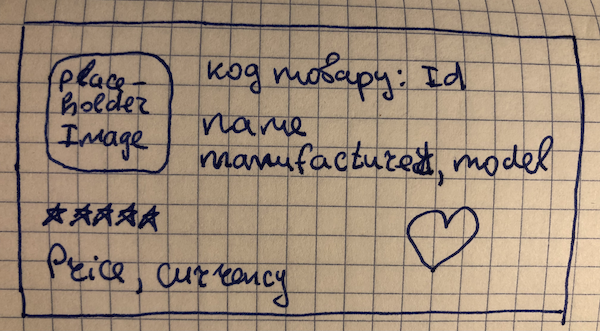 place-
holder
Image
код товару: Id
name
manufacturer, model
Price, currency